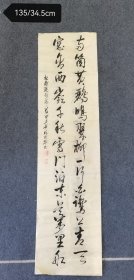 135/34.5cm
两箇黄鹂鸣翠柳一行白鹭上青天
窗含西岭千秋雪门泊东吴万里船